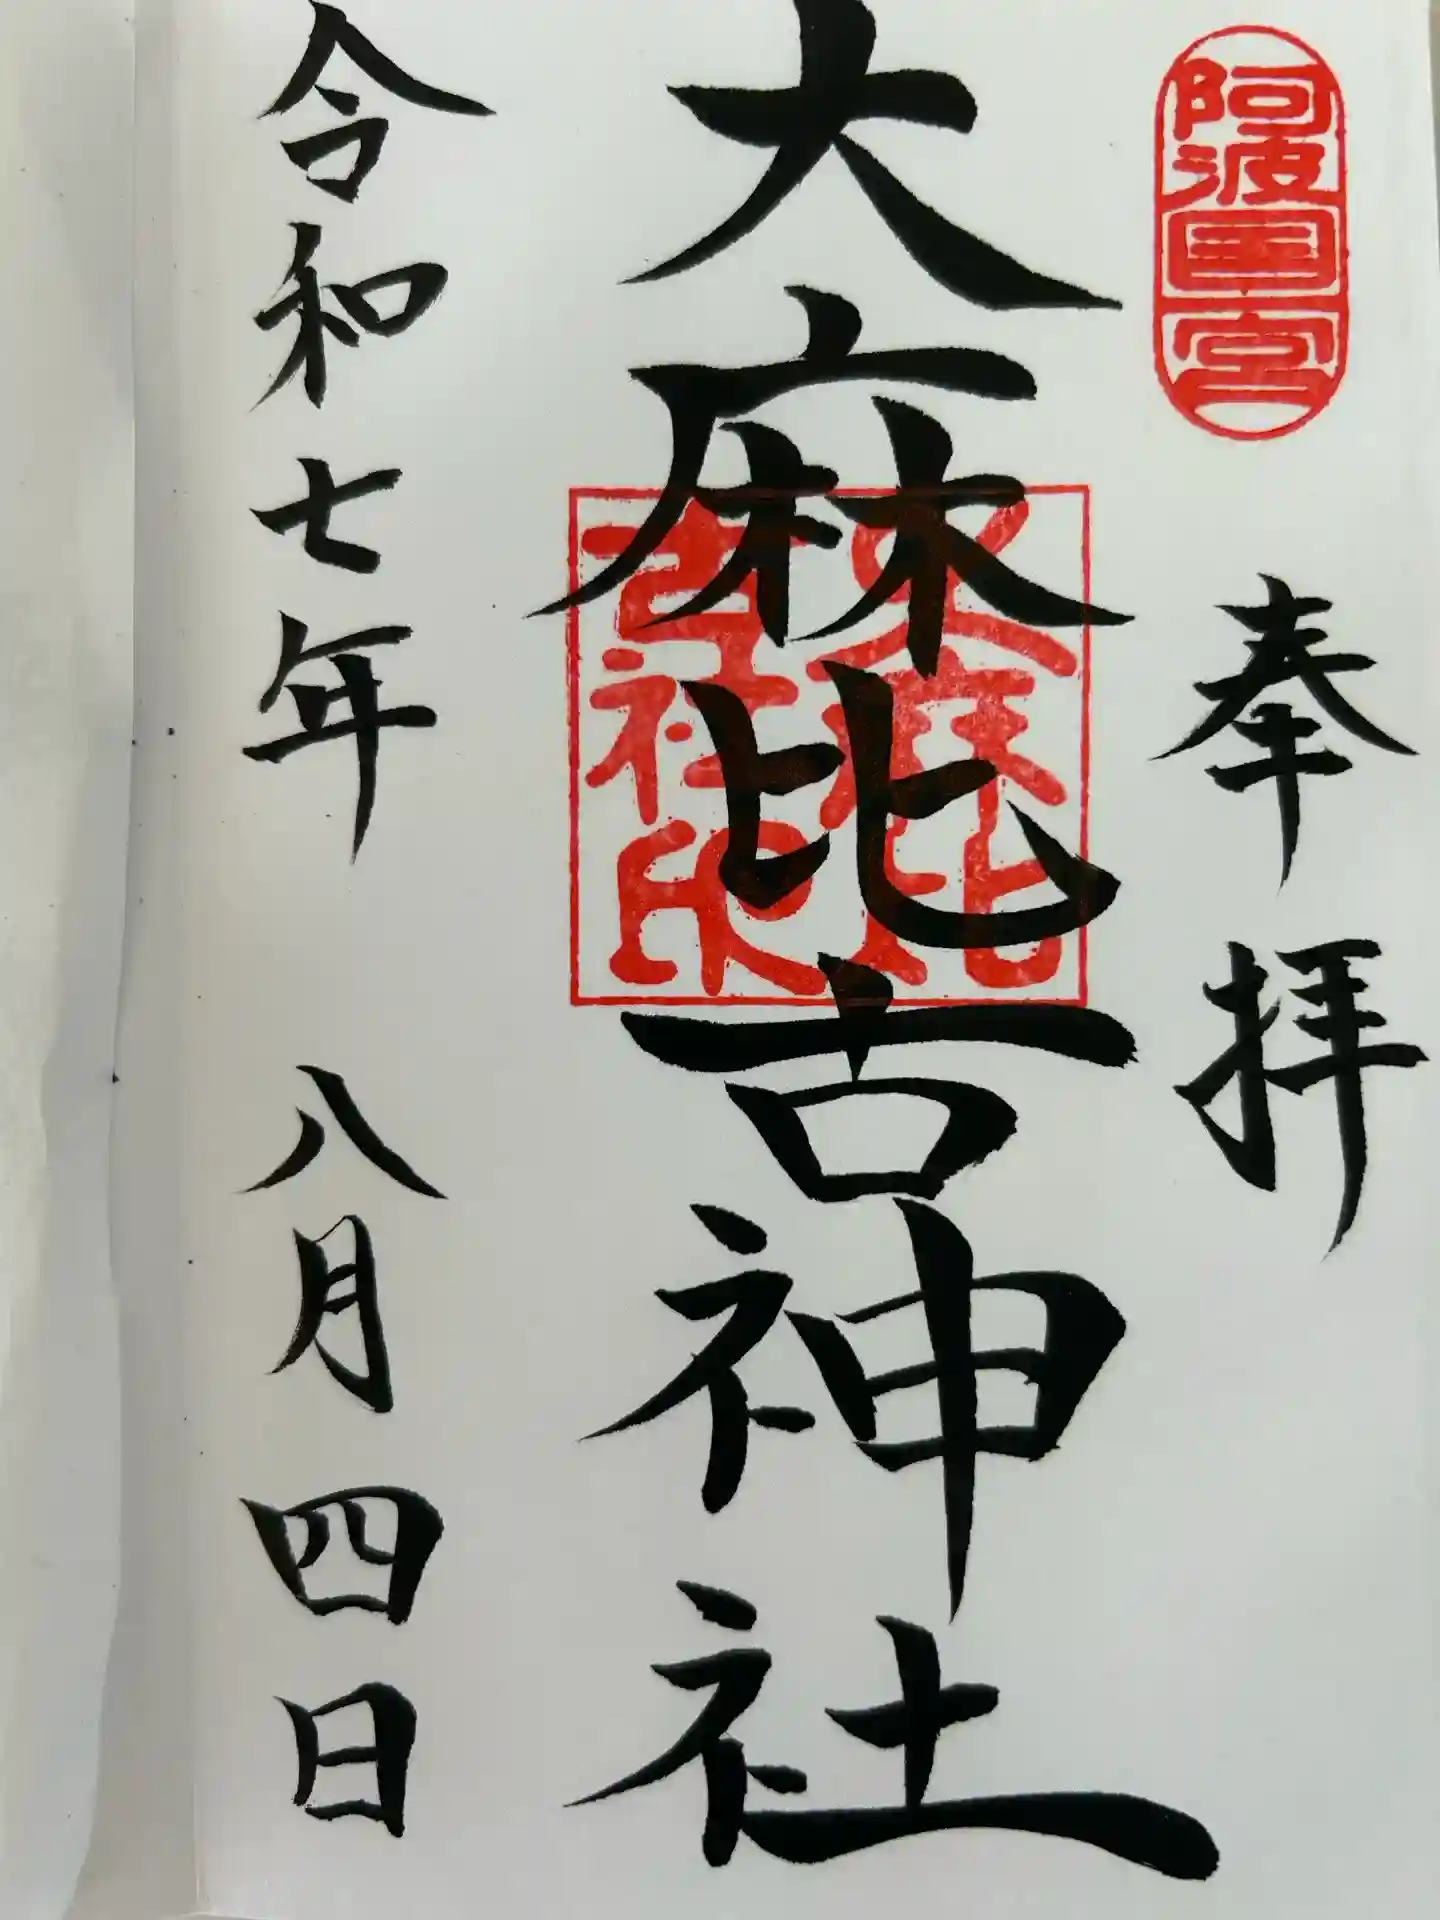 阿波国一宮
奉拝
大麻比古神社
大麻比古社印
令和七年 八月四日